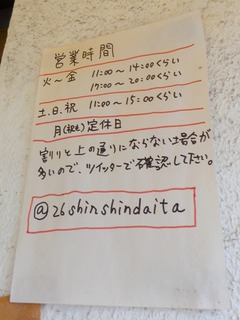 営業時間
火〜金 11:00〜14:00くらい
17:00〜20:00くらい
土.日.祝 11:00〜15:00くらい
月(祝も)定休日
割りと上の通りにならない場合が
多いので、ツイッターで確認して下さい。
@26shinshindaita